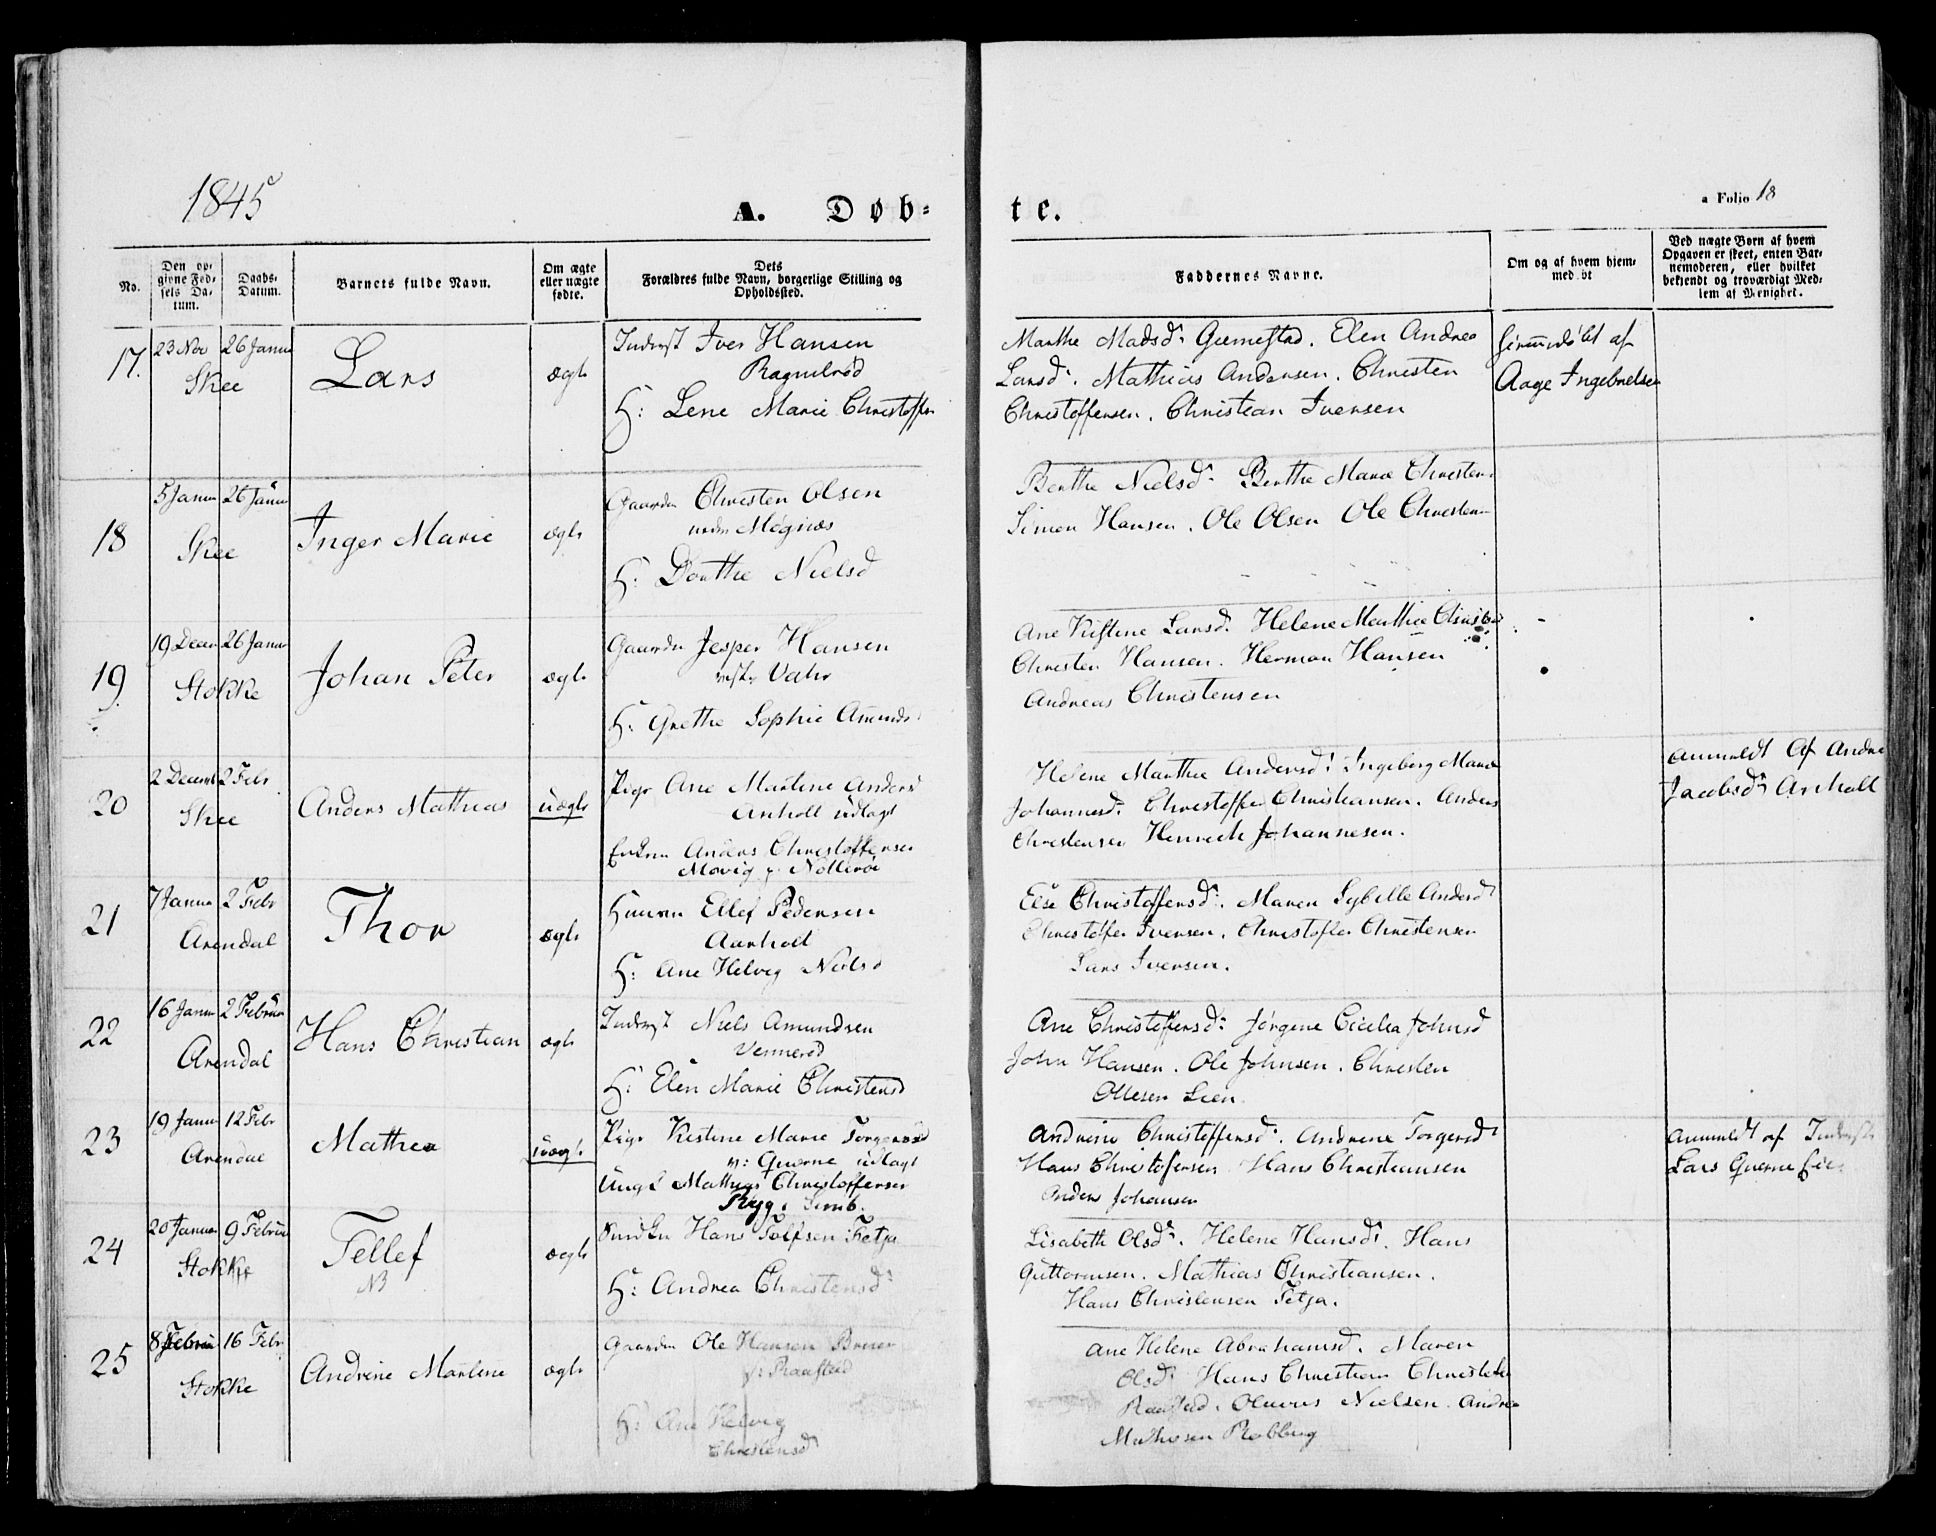 1845
A. Døb-
te.
a Folio 18
No.
Den op-
givne Fød-
sels Da-
tum.
Daabs-
Datum.
Barnets fulde Navn.
Om ægte
eller uægte
fødte.
Dets
Forældres fulde Navn, borgerlige Stilling og
Opholdssted.
Faddernes Navne.
Om og af hvem hjem-
med bt
Ved uægte Børn af hvem
Opgaven er skeet, enten Bar-
nemoderen, eller hvilket
bekjendt og troværdigt Med-
lem af Menighet.
17. 23 Nov 26 Janu
Skee
Lars
ægte
Inderst Iver Hansen
Ragnelrød
H: Lene Marie Christoffer
Marthe Madsd: Gjemestad. Elen Andrea
Larsd. Mathias Andersen. Christen
Christoffersen. Christian Iversen
hjemmedøbt af
Aage Ingebretsen
18 5 Janu 26 Janu
Skee
Inger Marie
ægte
Gaardm Christen Olsen
nedre Møgnæs
H: Dorthe Nielsd
Berthe Nielsd: Berthe Marie Christen
Simon Hansen. Ole Olsen Ole Christen
19. 19 Decm 26 Janu
Stokke
Johan Peter
ægte
Gaardm Jesper Hansen
H: Grethe Sophie Amunds
Ane Kistine Larsd. Helene Marthie
Christen Hansen. Herman Hansen
Andreas Christensen
20 2 Decmb 2 Febr
Skee
Anders Mathias
uægte
Pige Ane Marlene Anders
Anholt udlagt
Enkem Anders Christoffersen
Movig p. Nøtterøe
Helene Marthie Andersd: Ingeborg Marie
Johannesd: Christoffer Christiansen. Anders
Christensen Henrich Johannesen.
anmeldt Af Andre
Jacobsd: Arholt
21 7 Janua 2 Febr
Arendal
Thor
ægte
Huusm Ellef Pedersen
Aarholt
H: Ane Helvig Nielsd
Else Christoffersd: Maren Sybille Andersd
Christoffer Iversen. Christoffer Christensen
Lars Iversen.
22 16 Janu 2 Februar
Arendal
Hans Christian
ægte
Inderst Niels Amundsen
Vennerød
H: Elen Marie Christensd
Ane Christoffersd: Jørgene Cicilia Johnsd
John Hansen. Ole Johnsen. Christen
Ollesen Leen.
23 19 Janu 12 Febr
Arendal
Mathea
uægte
Pige Kistine Marie Torgersd
p: Qverne udlagt
Ungk Mathias Christoffersen
Ryg i Semb.
Andrine Christoffersd: Andrene Torgersd:
Hans Christofersen Hans Christiansen
Anders Johansen
anmeldt af Inderst
Lars Qverne Eie
24 20 Janua 9 Februar
Stokke
Tellef
NB
ægte
Hans Tolfsen Fetja
H: Andrea Christensd:
Lisabeth Olsd: Helene Hansd: Hans
Guttormsen. Mathias Christiansen.
Hans Christensen Fetja.
25 8 Februa 16 Febr
Stokke
Andrine Marlene
ægte
Gaardm Ole Hansen
p: Raastad
H: Ane Helvig
Christensd
Ane Helene Abrahamsd. Maren
Olsd: Hans Christian Christ
Raastad. Oluvus Nielsen. Andrea